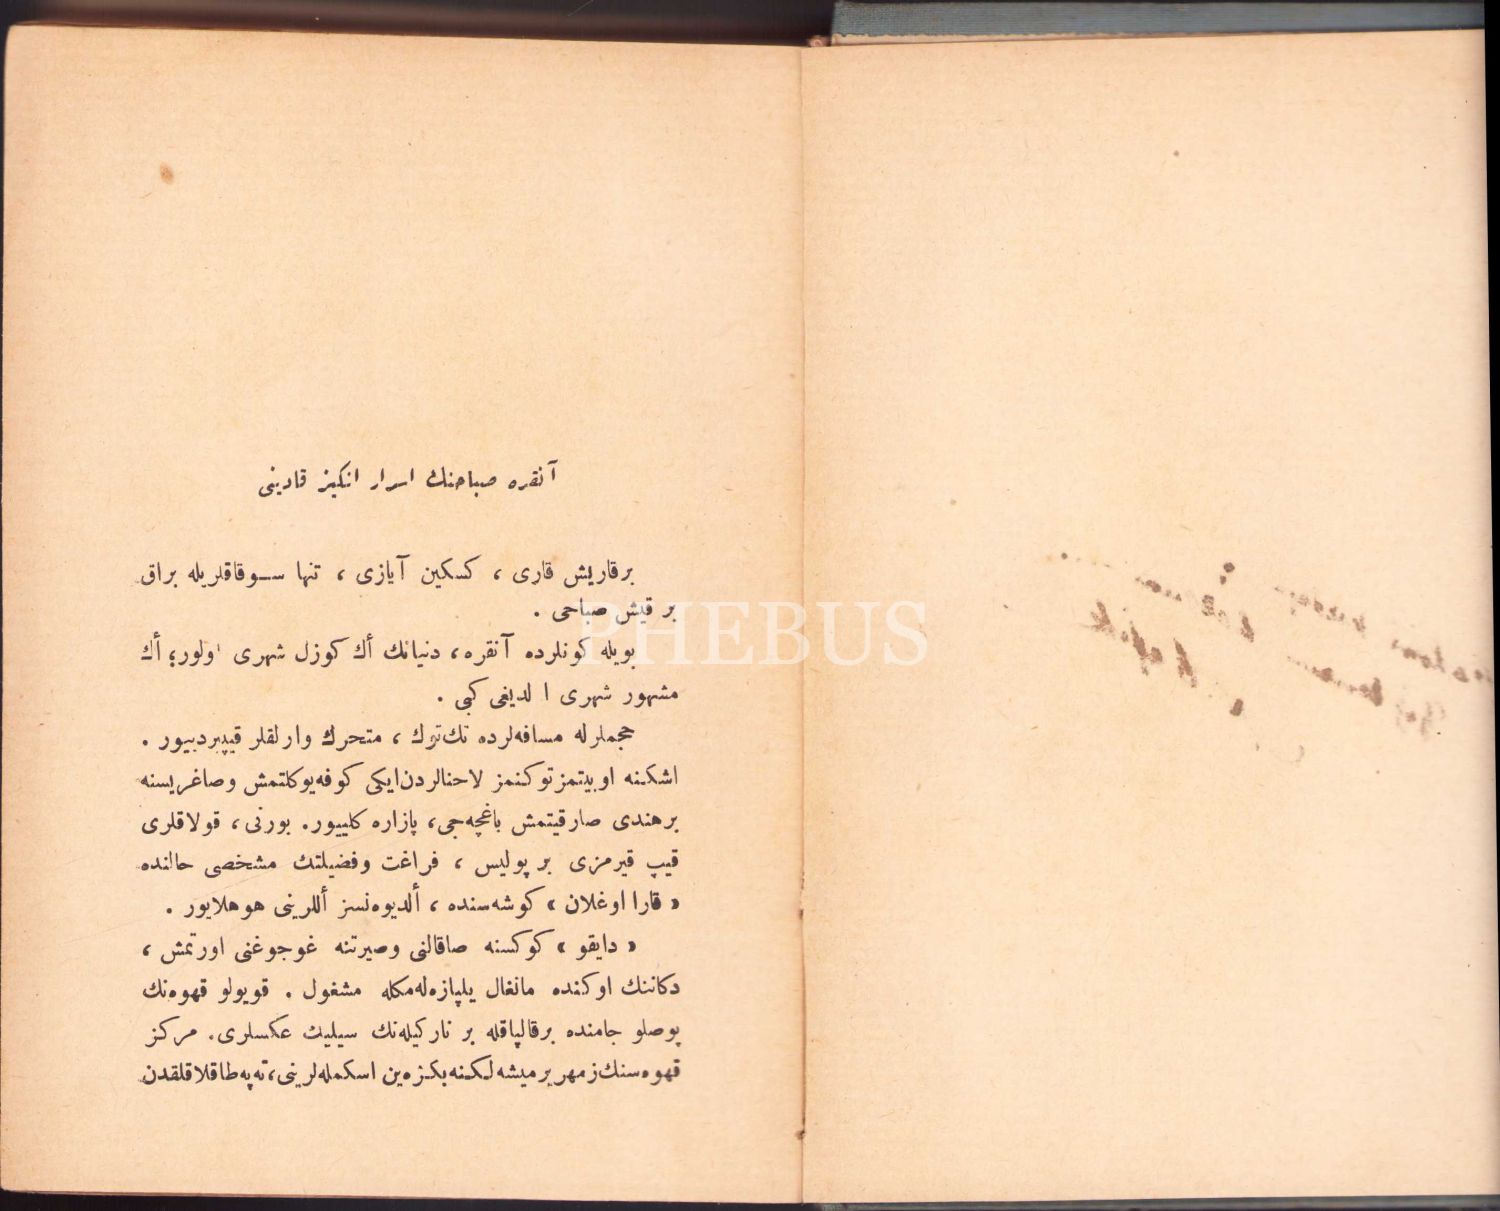 آنقره صباحنك اسرار انكيز قادينى
برقاريش قارى ، كسكين آيازى ، تنها سوقاقلريله براق
بر قيش صباحى .
بويله كونلرده آنقره، دنيانك أك كوزل شهرى اولور؛ أك
مشهور شهرى ا لديغى كبى .
حجملرله مسافه‌لرده تك‌توك ، متحرك وارلقلر قيپيرديیور .
اشكنه اوبيتمزتوكنمز لاحنالردن‌ايكى كوفه‌يوكلتمش وصاغريسنه
برهندى صارقيتمش باغچه‌جى، پازاره كلييور. بورنى، قولاقلرى
قيپ قيرمزى بر پوليس ، فراغت وفضيلتك مشخصى حالنده
« قارا اوغلان » كوشه‌سنده ، ألديوه‌نسز أللرينى هوهلايور .
« دايقو » كوكسنه صاقالنى وصيرتنه غوجوغنى اورتمش ،
دكاننك اوكنده مانغال يلپازه‌له‌مكله مشغول . قويولو قهوه‌نك
بوصلو جامنده برقالپاقله بر ناركيله‌نك سيليك عكسلرى. مركز
قهوه‌سنك‌زمهريرميشه‌لكنه‌بكزه‌ين اسكمله‌لرينى، ته‌په‌طاقلاقلقدن
PHEBUS